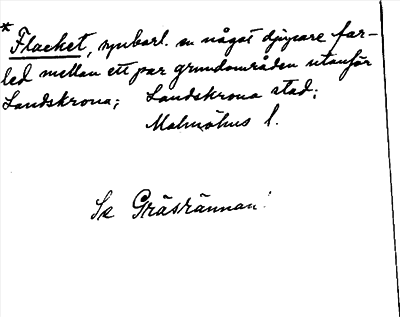 * Flacket, synbarl. en något djupare far-
led mellan ett par grundområden utanför
Landskrona; Landskrona stad;
Malmöhus l.
Se Gräsrännan!